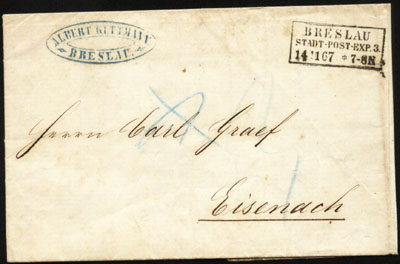 ALBERT RITTMANN
BRESLAU.
BRESLAU
STADT-POST-EXP. 3.
14 1 67 * 7-8N
Herrn Carl Graef
Eisenach